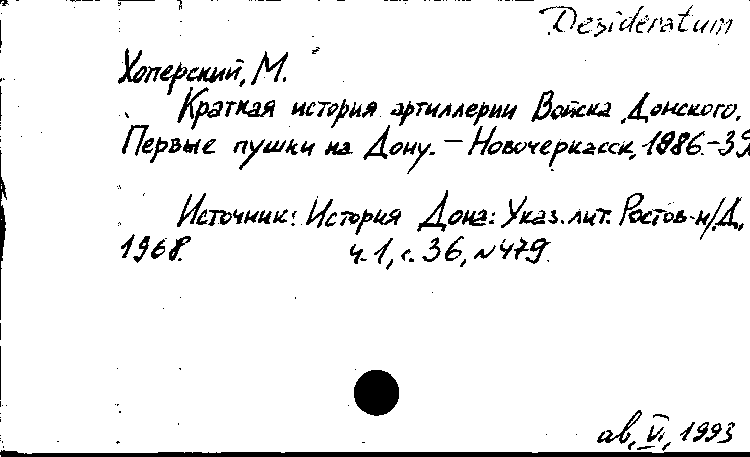 Desideratum
Хоперский, М.
Краткая история артиллерии Войска Донского.
Первые пушки на Дону. — Новочеркасск, 1986.-39
Источник: История Дона: Указ. лит. Ростов-н/Д.,
1968. ч.1, с.36, №479.
ав, VI, 1993